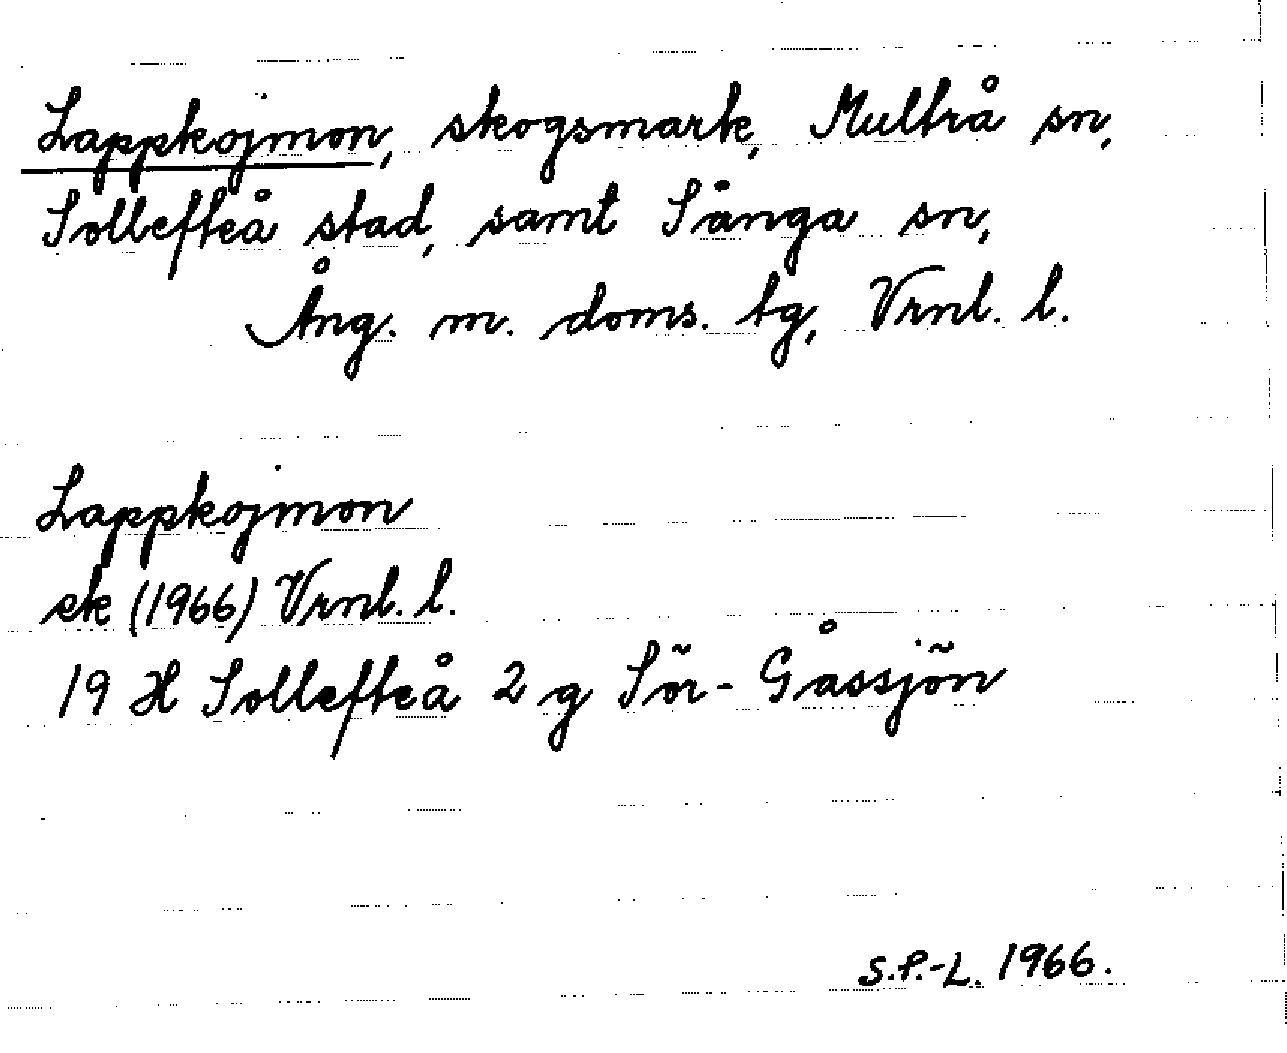 Lappkojmon, skogsmark, Multrå sn,
Sollefteå stad, samt Sånga sn,
Ång. m. doms. tg, Vrnl. l.
Lappkojmon
ek (1966) Vrnl. l.
19 H Sollefteå 2 g Sör-Gåssjön
S.P.-L. 1966.